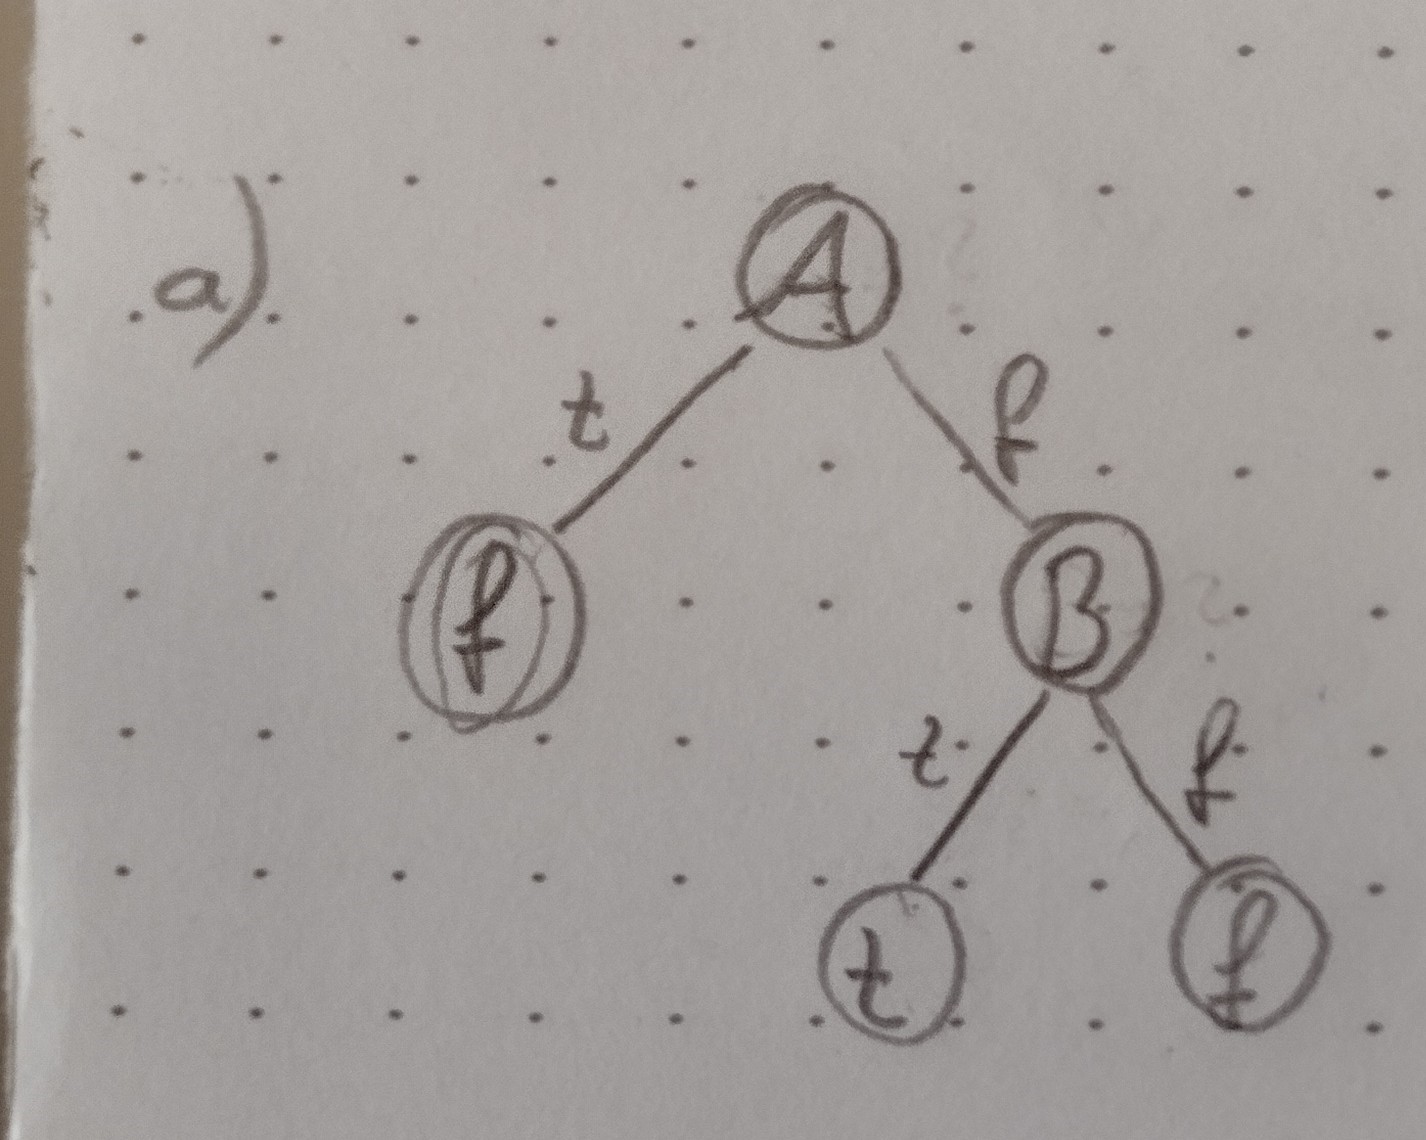 a)
A
t f
f B
t f
t f